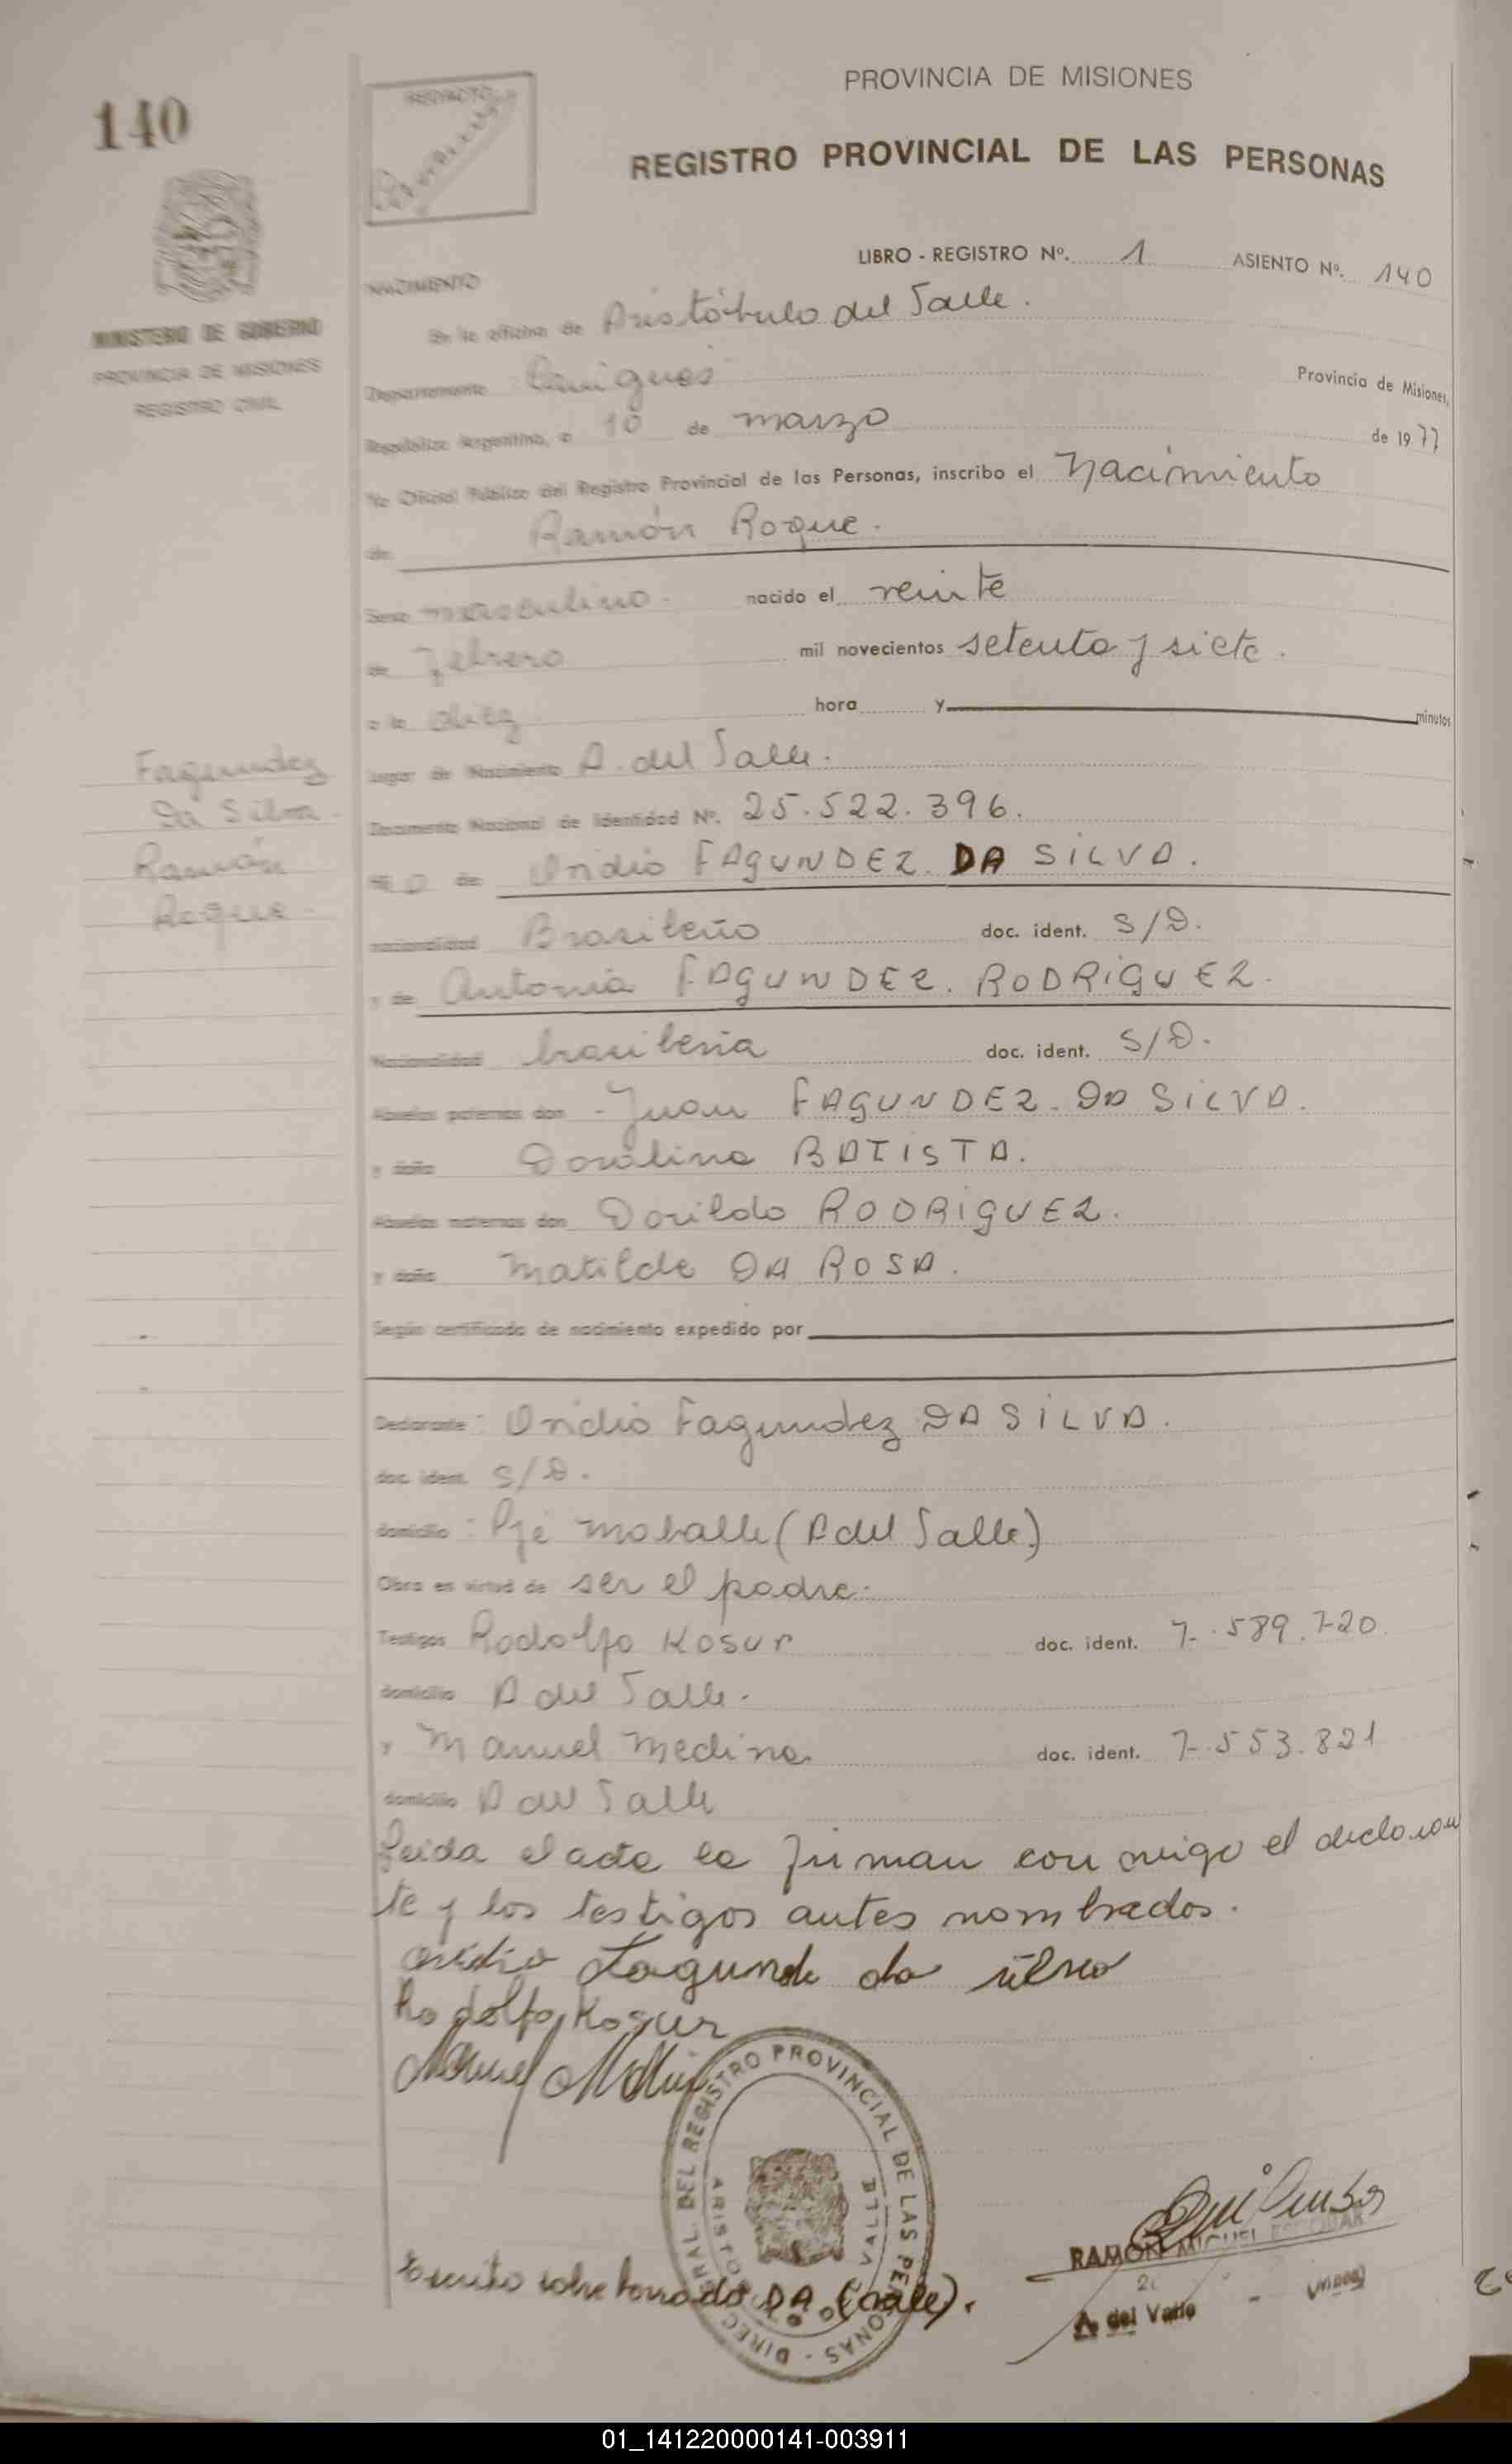 PROVINCIA DE MISIONES
140
REDACTO
REGISTRO PROVINCIAL DE LAS PERSONAS
LIBRO - REGISTRO Nº. 1 ASIENTO Nº. 140
NACIMIENTO
MINISTERIO DE GOBIERNO
PROVINCIA DE MISIONES
REGISTRO CIVIL
En la oficina de Aristóbulo del Valle.
Departamento Cainguás Provincia de Misiones,
República Argentina, a 10 de marzo de 1977
Yo Oficial Público del Registro Provincial de las Personas, inscribo el Nacimiento
de Ramón Roque.
Sexo masculino. nacido el veinte
de febrero mil novecientos setenta y siete.
a la diez hora y minutos
Lugar de Nacimiento A. del Valle.
Fagundez
Da Silva
Ramón
Roque
Documento Nacional de Identidad Nº. 25.522.396.
HIJO de Ovidio FAGUNDEZ DA SILVA.
nacionalidad Brasileño doc. ident. S/D.
y de Antonia FAGUNDEZ. RODRIGUEZ.
Nacionalidad brasileña doc. ident. S/D.
Abuelos paternos don - Juan FAGUNDEZ. DA SILVA.
y doña Doralina BATISTA.
Abuelos maternos don Dorildo RODRIGUEZ.
y doña Matilde DA ROSA.
Según certificado de nacimiento expedido por
Declarante: Ovidio Fagundez DA SILVA.
doc. ident. S/D.
domicilio: Pje Moballe (A del Valle)
Obra en virtud de ser el padre.
Testigos Rodolfo Kosur doc. ident. 7.589.720.
domicilio A del Valle.
y Manuel Medina doc. ident. 7.553.821
domicilio A del Valle
Leida el acta la firman conmigo el declaran
te y los testigos antes nombrados.
ovidio Fagunde da silva
Rodolfo Kosur
Manuel
DIREC RAL DEL REGISTRO PROVINCIAL DE LAS PERSONAS
ARISTO VALLE
RAMON MIGUEL ESCOBAR
A. del Valle - (Mnes)
Escrito sobre borrado DA (vale).
01_141220000141-003911